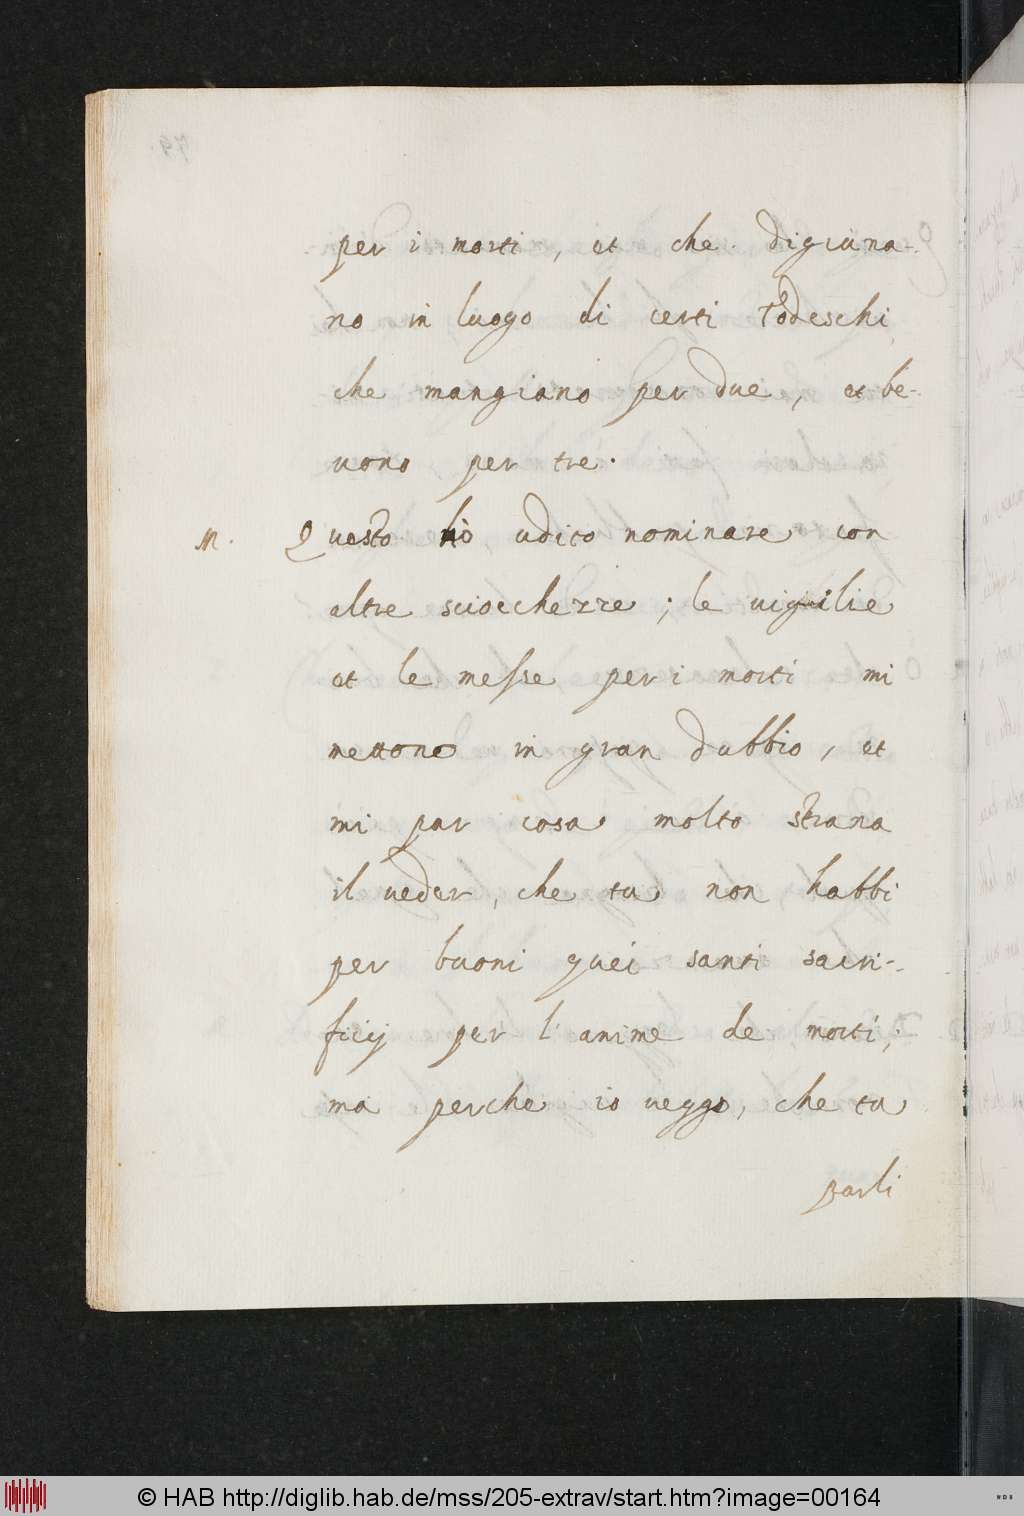 per i morti, et che digiuna-
no in luogo di certi Todeschi
che mangiano per due, et be-
uono per tre.
M. Questo hò udito nominare con
altre sciocchezze; le uigilie
et le messe per i morti mi
mettono in gran dubbio, et
mi par cosa molto strana
il ueder, che tu non habbi
per buoni quei santi sacri-
ficij per l'anime de morti,
ma perche io ueggo, che tu
parli
© HAB http://diglib.hab.de/mss/205-extrav/start.htm?image=00164